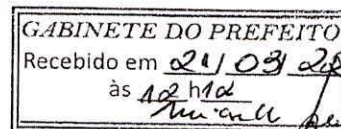 GABINETE DO PREFEITO
Recebido em 21/03/
às 12 h12